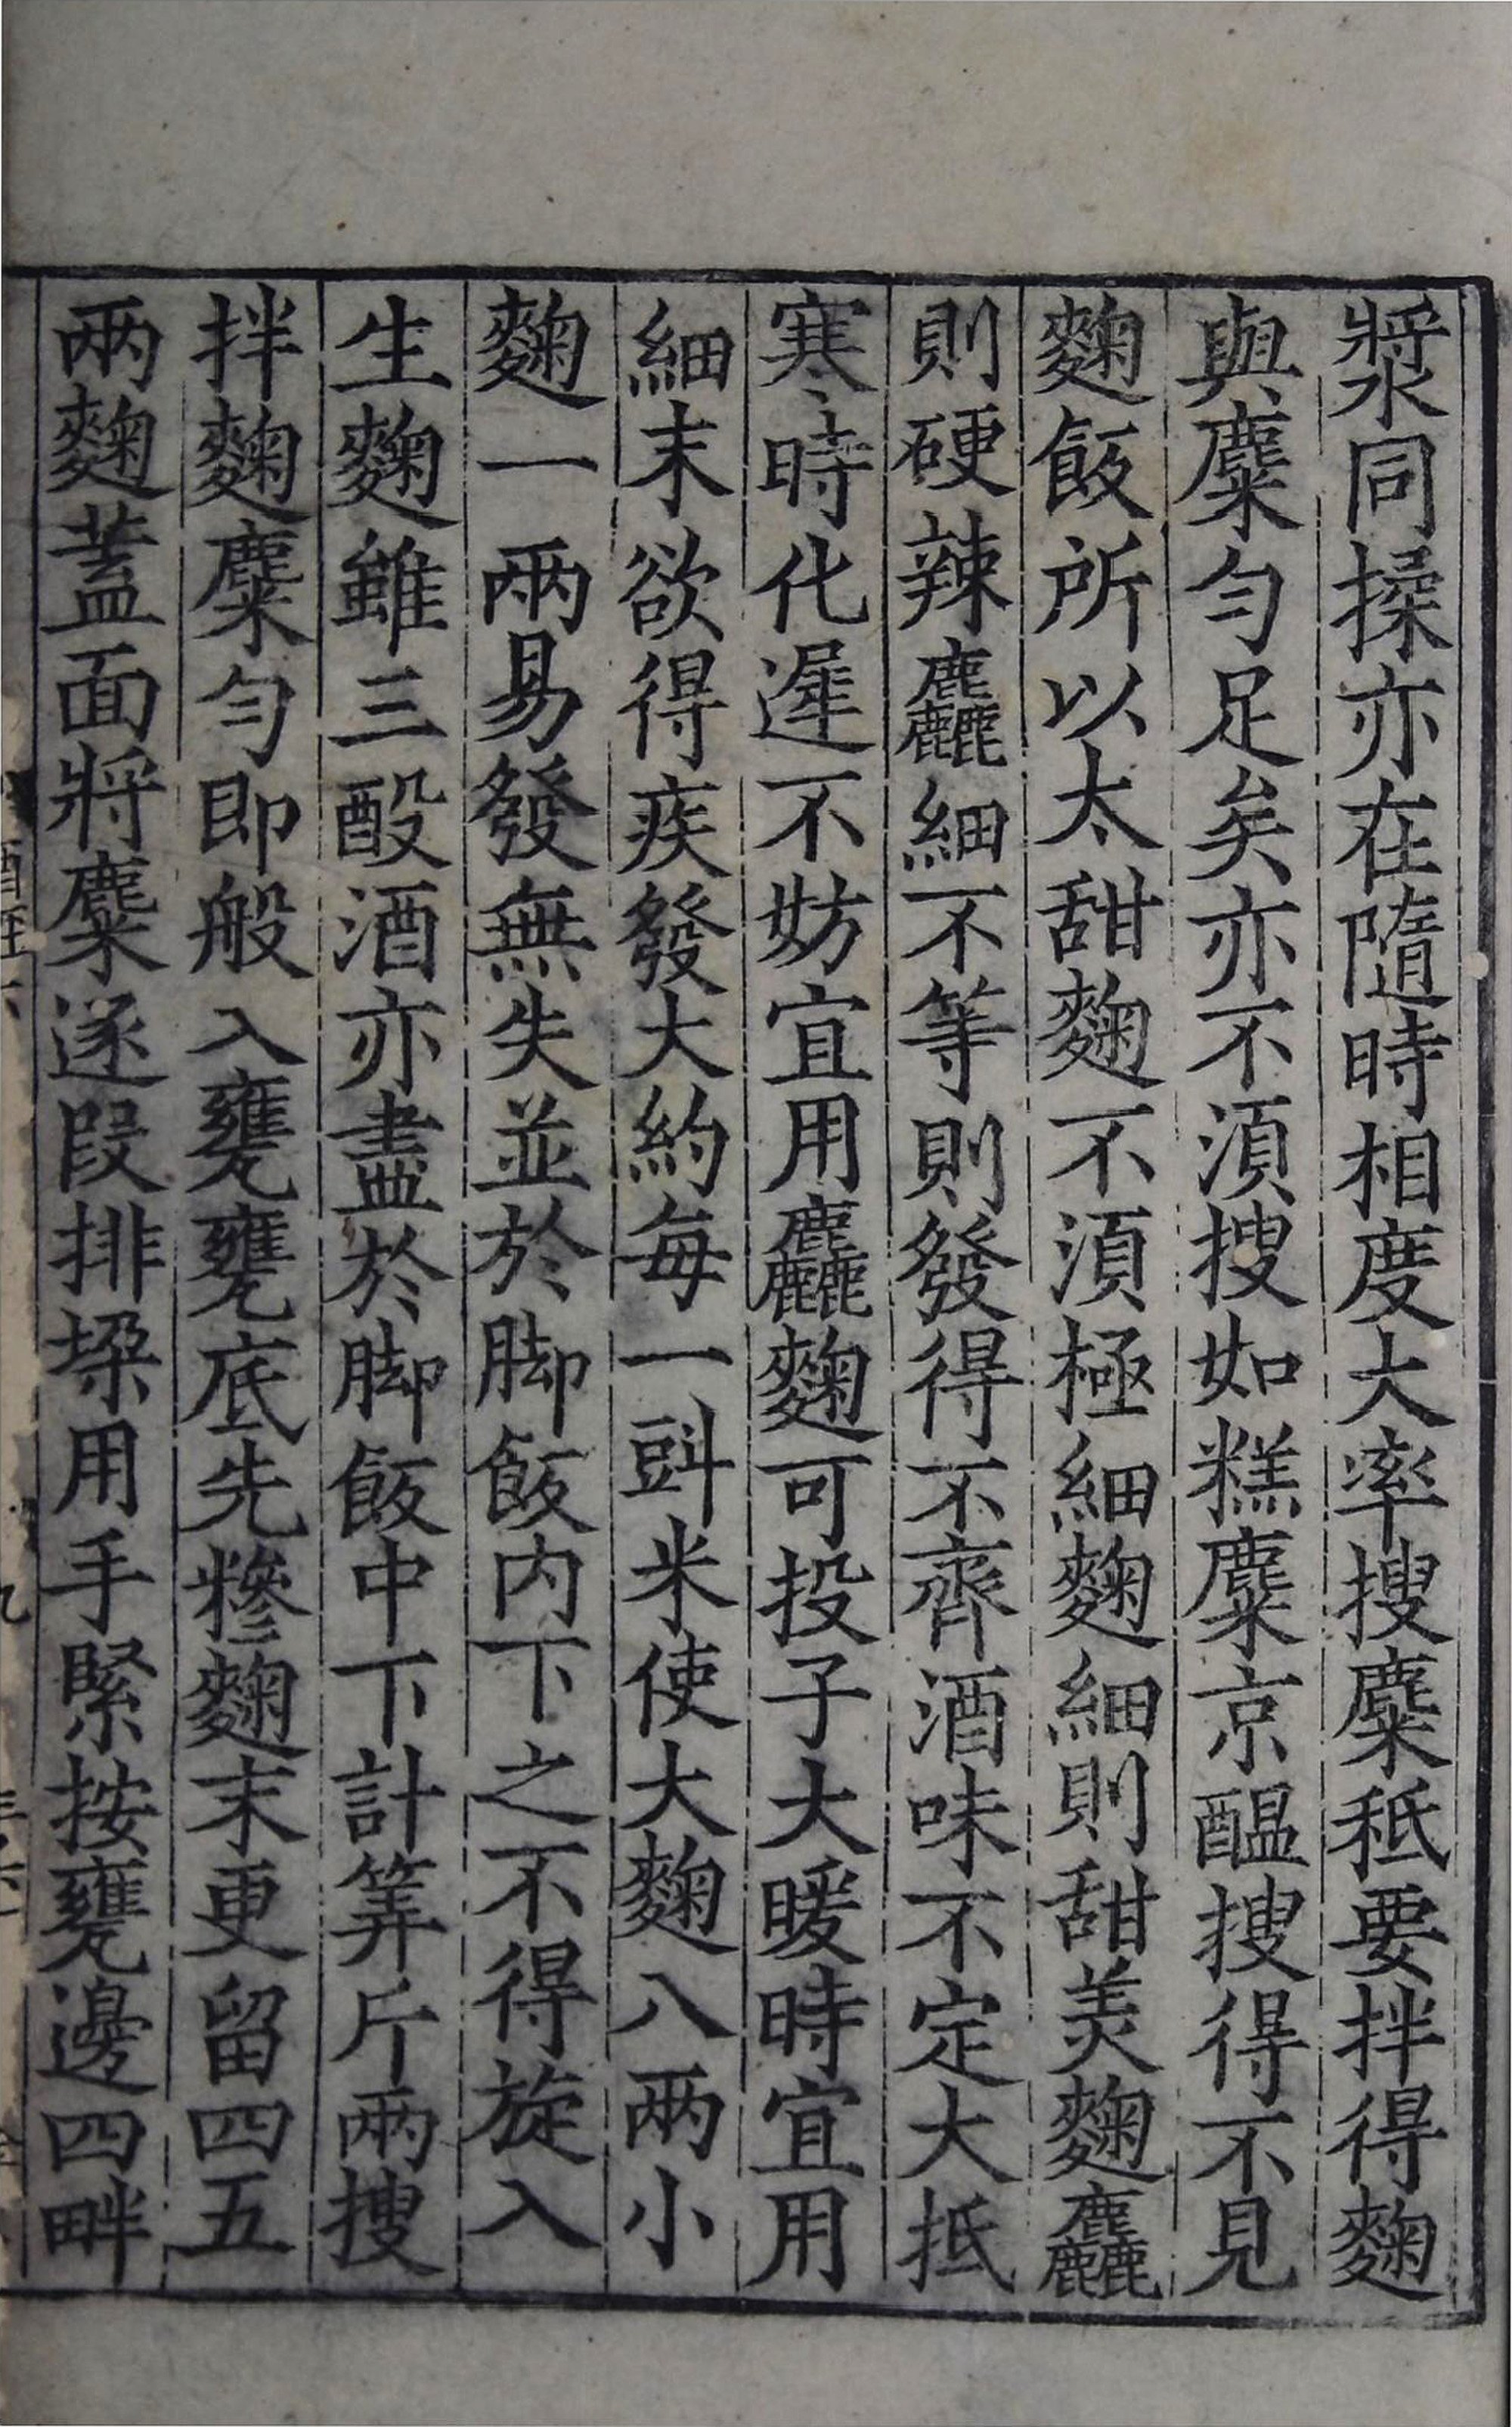 漿同搡亦在隨時相度大率搜麋秪要拌得麴
與麋勻足矣亦不湏搜如糕麋京醖搜得不見
麴飯所以太甜麴不湏極細麴細則甜美麴麤
則硬辣麤細不等則發得不齊酒味不定大抵
寒時化遲不妨宜用麤麴可投子大暖時宜用
細末欲得疾發大約每一㪷米使大麴八兩小
麴一兩易發無失並於脚飯内下之不得旋入
生麴雖三酘酒亦盡於脚飯中下計筭斤兩搜
拌麴麋勻即般入甕甕底先糝麴末更留四五
兩麴蓋面將麋逐段排垜用手緊按甕邊四畔